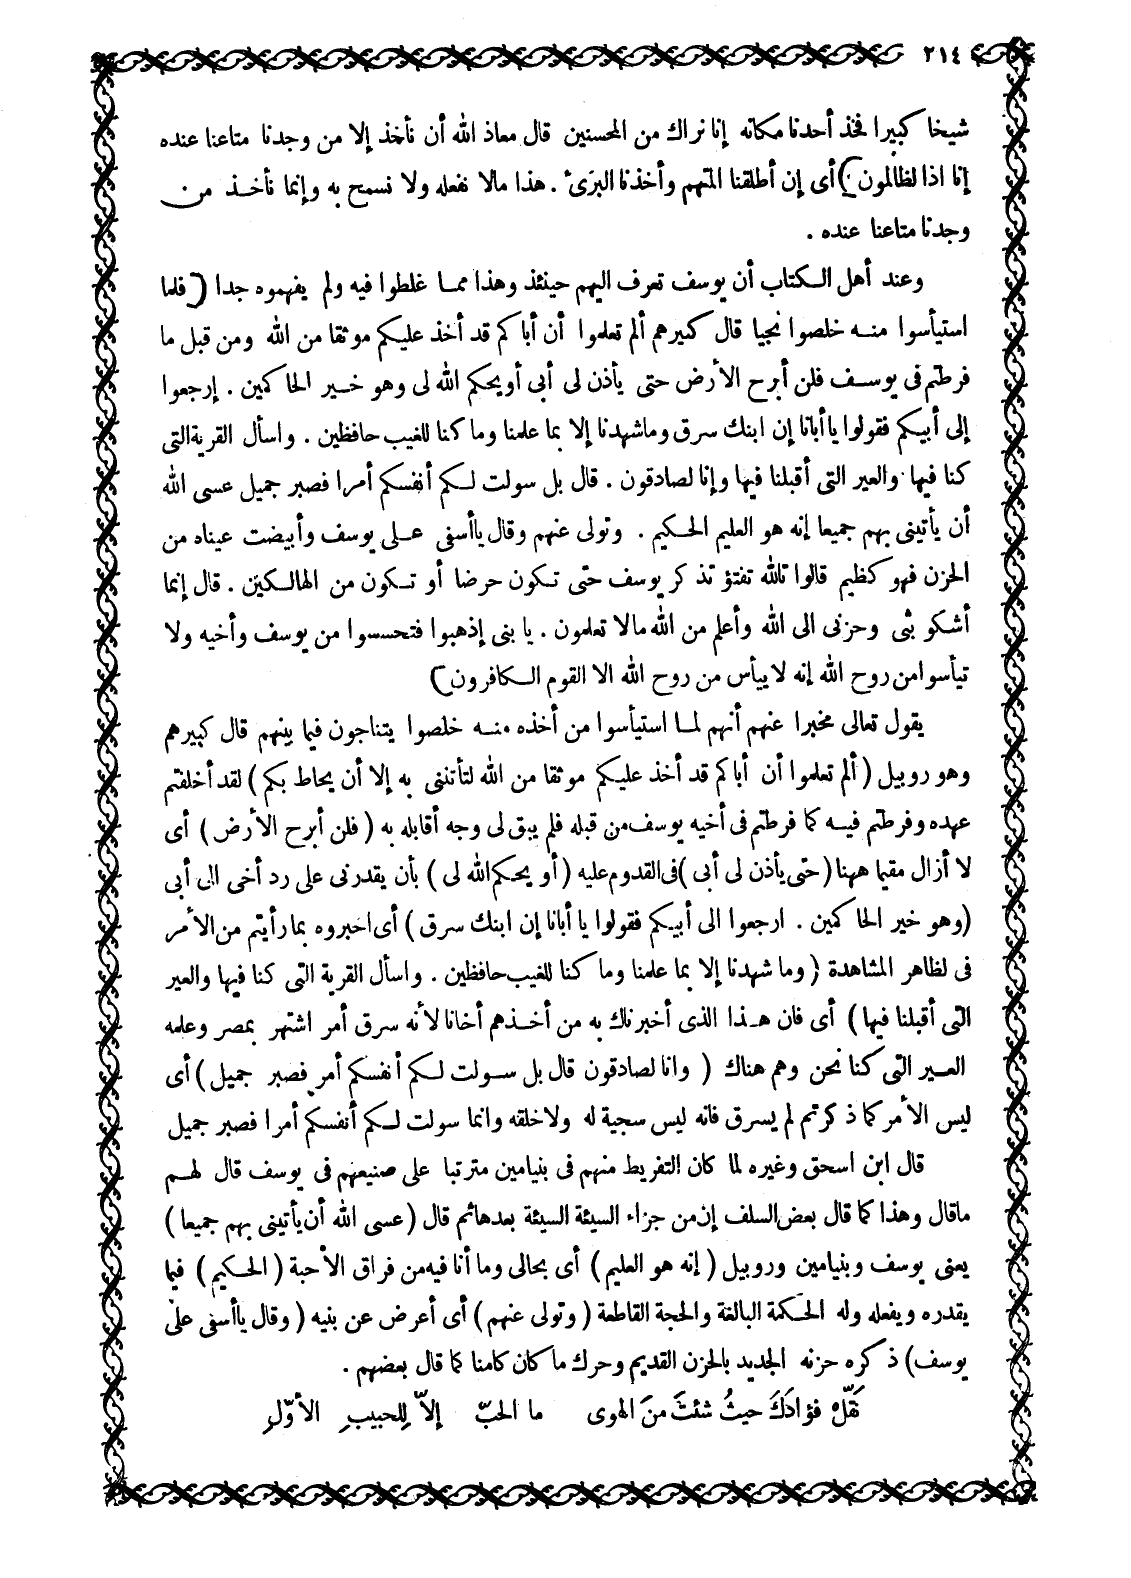 ٢١٤
شيخا كبيرا فخذ أحدنا مكانه إنا نراك من المحسنين قال معاذ الله أن نأخذ إلا من وجدنا متاعنا عنده
إنا اذا لظالمون ) أى إن أطلقنا المتهم وأخذنا البرئ . هذا مالا نفعله ولا نسمح به وإنما نأخذ من
وجدنا متاعنا عنده .
وعند أهل الكتاب أن يوسف تعرف اليهم حينئذ وهذا مما غلطوا فيه ولم يفهموه جدا ( فلما
استيأسوا منه خلصوا نجيا قال كبيرهم ألم تعلموا أن أباكم قد أخذ عليكم موثقا من الله ومن قبل ما
فرطتم فى يوسف فلن أبرح الأرض حتى يأذن لى أبى أو يحكم الله لى وهو خير الحاكمين . إرجعوا
إلى أبيكم فقولوا يا أبانا إن ابنك سرق وما شهدنا إلا بما علمنا وما كنا للغيب حافظين . واسأل القرية التى
كنا فيها والعير التى أقبلنا فيها وإنا لصادقون . قال بل سولت لكم أنفسكم أمرا فصبر جميل عسى الله
أن يأتينى بهم جميعا إنه هو العليم الحكيم . وتولى عنهم وقال يا أسفى على يوسف وأبيضت عيناه من
الحزن فهو كظيم قالوا تالله تفتؤ تذكر يوسف حتى تكون حرضا أو تكون من الهالكين . قال إنما
أشكو بثى وحزنى الى الله وأعلم من الله مالا تعلمون . يا بنى إذهبوا فتحسسوا من يوسف وأخيه ولا
تيأسوا من روح الله إنه لا ييأس من روح الله الا القوم الكافرون )
يقول تعالى مخبرا عنهم أنهم لما استيأسوا من أخذه منه خلصوا يتناجون فيما بينهم قال كبيرهم
وهو روبيل ( ألم تعلموا أن أباكم قد أخذ عليكم موثقا من الله لتأتننى به إلا أن يحاط بكم ) لقد أخلفتم
عهده وفرطتم فيه كما فرطتم فى أخيه يوسف من قبله فلم يبق لى وجه أقابله به ( فلن أبرح الأرض ) أى
لا أزال مقيما ههنا ( حتى يأذن لى أبى ) فى القدوم عليه ( أو يحكم الله لى ) بأن يقدرنى على رد أخى الى أبى
( وهو خير الحاكمين . ارجعوا الى أبيكم فقولوا يا أبانا إن ابنك سرق ) أى اخبروه بما رأيتم من الأمر
فى لظاهر المشاهدة ( وما شهدنا إلا بما علمنا وما كنا للغيب حافظين . واسأل القرية التى كنا فيها والعير
التى أقبلنا فيها ) أى فان هذا الذى أخبرناك به من أخذهم أخانا لأنه سرق أمر اشتهر بمصر وعلمه
العير التى كنا نحن وهم هناك ( وانا لصادقون قال بل سولت لكم أنفسكم أمر فصبر جميل ) أى
ليس الأمر كما ذكرتم لم يسرق فانه ليس سجية له ولا خلقه وانما سولت لكم أنفسكم أمرا فصبر جميل
قال ابن اسحق وغيره لما كان التفريط منهم فى بنيامين مترتبا على صنيعهم فى يوسف قال لهم
ماقال وهذا كما قال بعض السلف إن من جزاء السيئة السيئة بعدها ثم قال ( عسى الله أن يأتينى بهم جميعا )
يعنى يوسف وبنيامين وروبيل ( إنه هو العليم ) أى بحالى وما أنا فيه من فراق الأحبة ( الحكيم ) فيما
يقدره ويفعله وله الحكمة البالغة والحجة القاطعة ( وتولى عنهم ) أى أعرض عن بنيه ( وقال يا أسفى على
يوسف ) ذكره حزنه الجديد بالحزن القديم وحرك ما كان كامنا كما قال بعضهم .
نَقِّلْ فؤادَكَ حيثُ شئتَ منَ الهوى ما الحبّ إلاّ لِلحبيبِ الأوّلِ